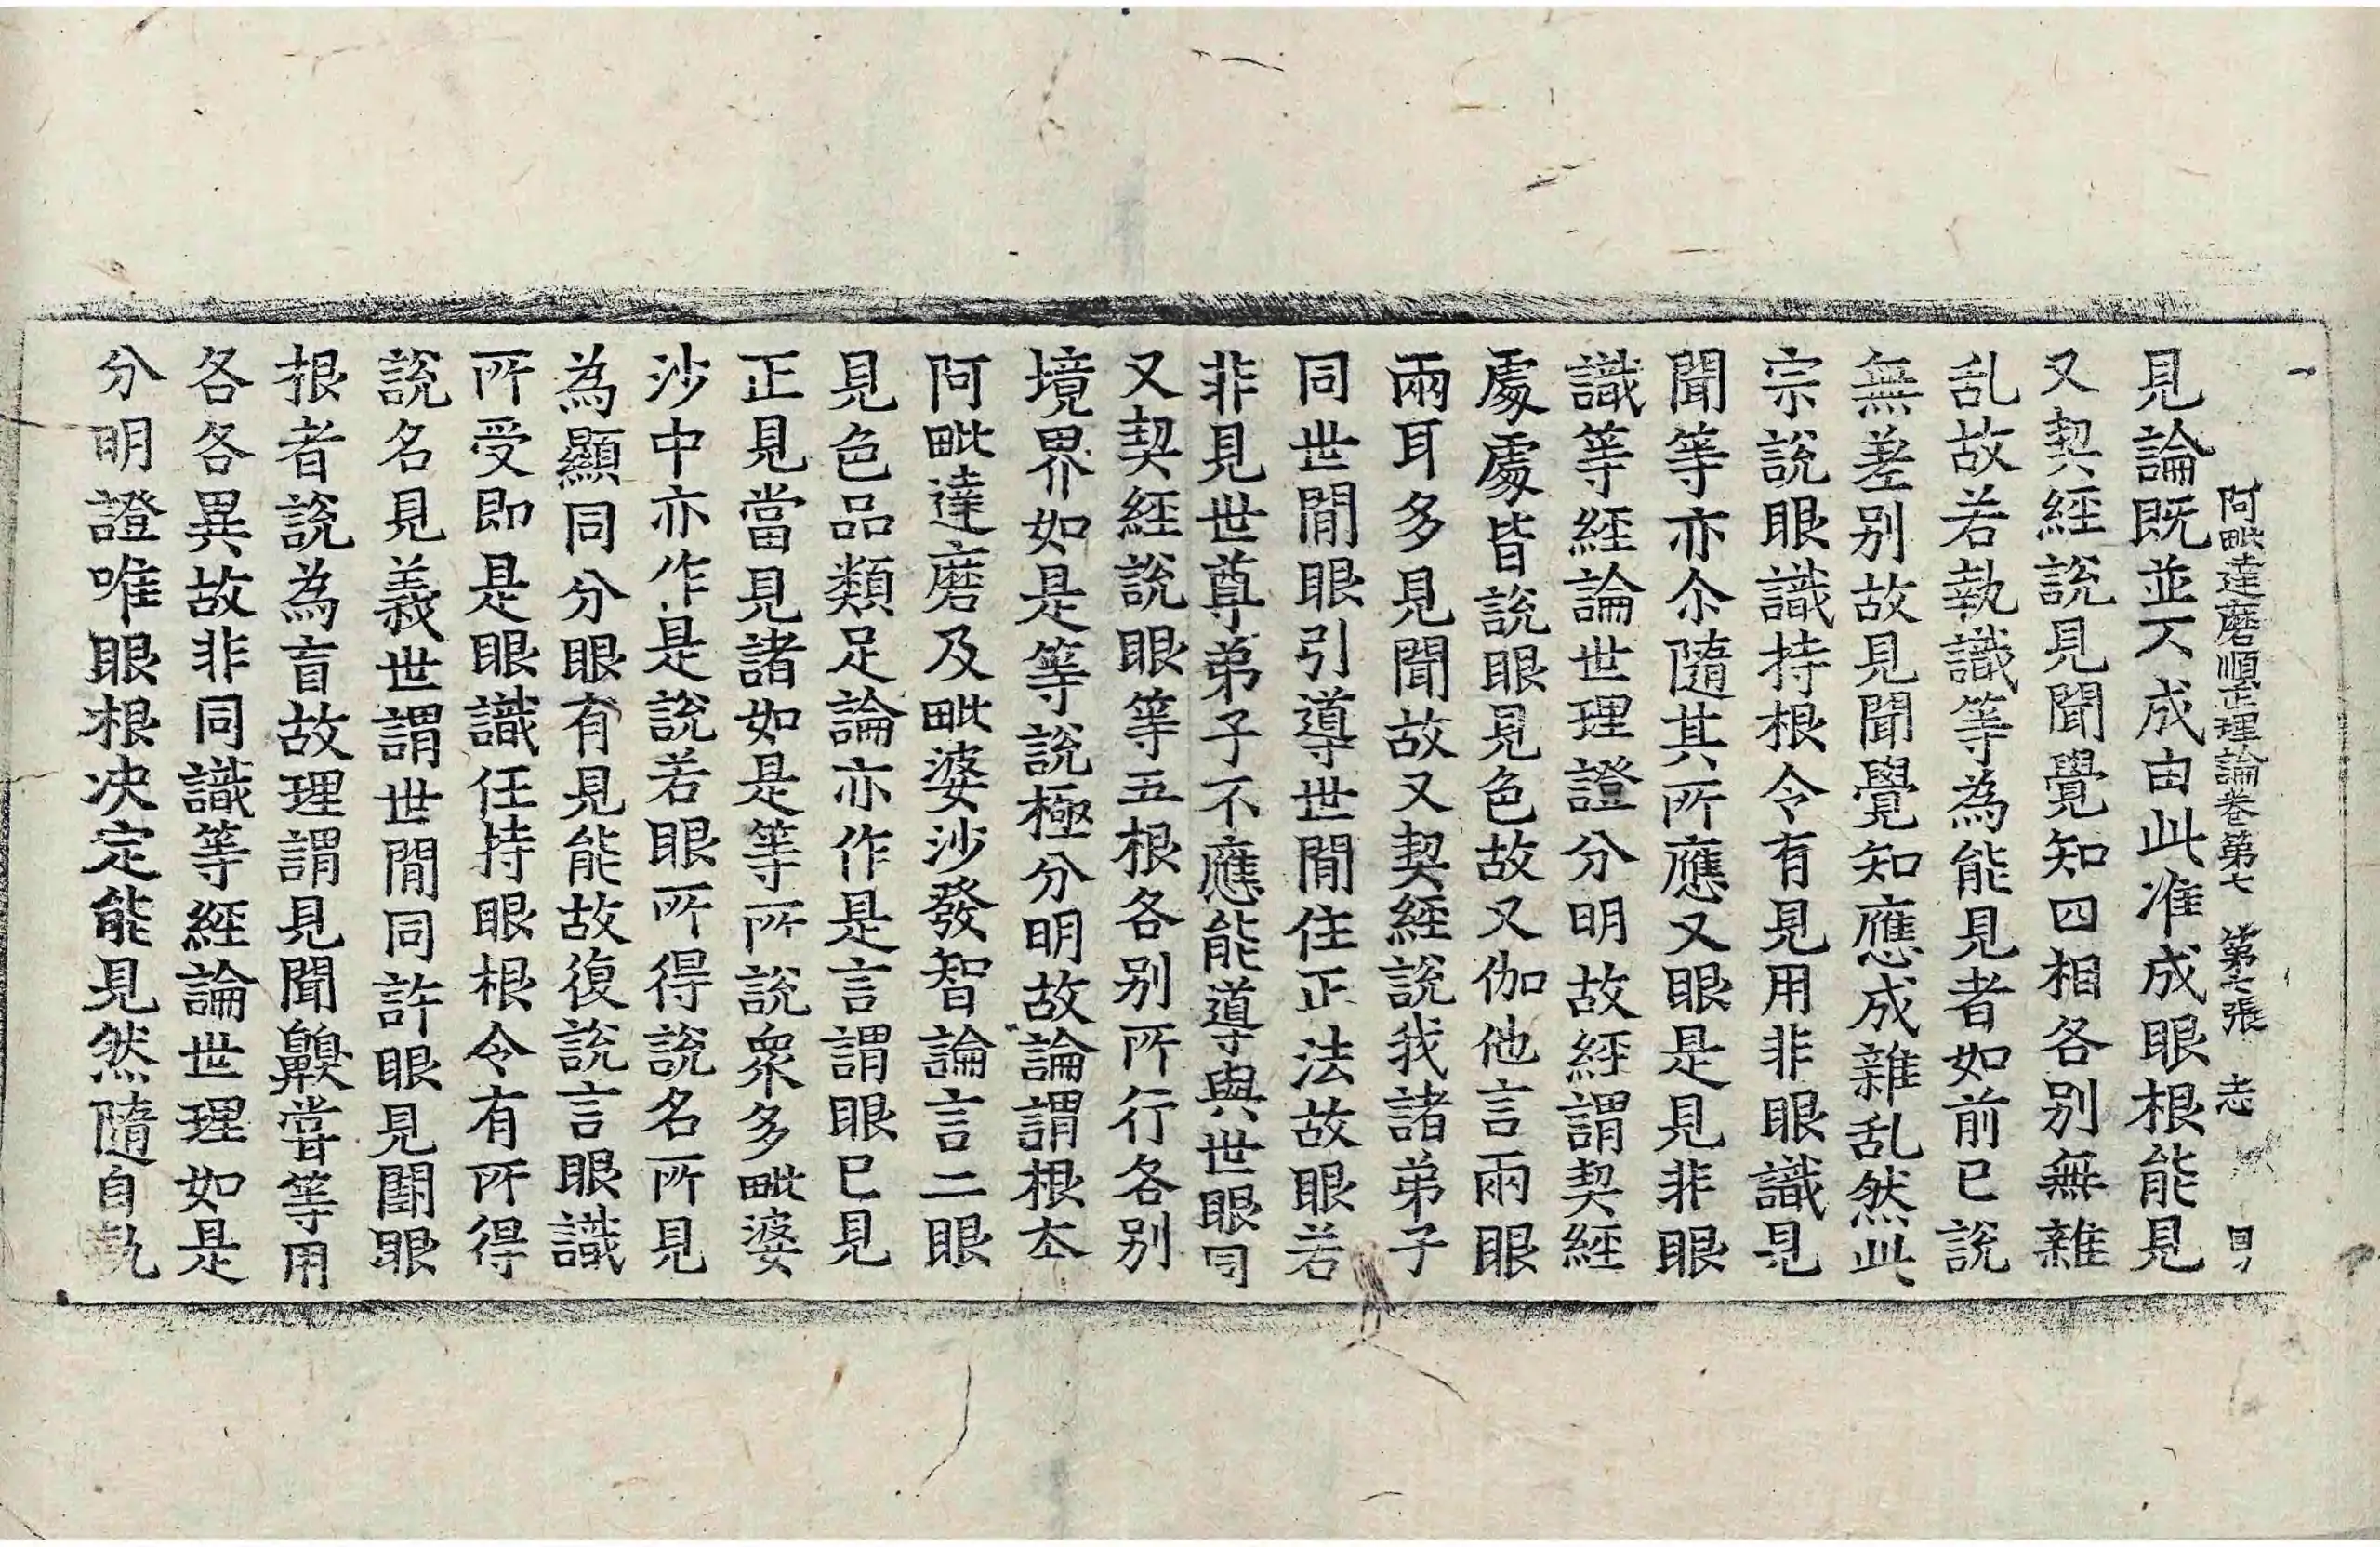 阿毗達磨順正理論卷第七 第七張 志
見論既並不成由此准成眼根能見
又契經說見聞覺知四相各別無雜
乱故若執識等為能見者如前已說
無差別故見聞覺知應成雜乱然此
宗說眼識持根令有見用非眼識見
聞等亦尒隨其所應又眼是見非眼
識等經論世理證分明故經謂契經
處處皆說眼見色故又伽他言兩眼
兩耳多見聞故又契經說我諸弟子
同世間眼引導世間住正法故眼若
非見世尊弟子不應能導與世眼同
又契經說眼等五根各別所行各別
境界如是等說極分明故論謂根本
阿毗達磨及毗婆沙發智論言二眼
見色品類足論亦作是言謂眼已見
正見當見諸如是等所說衆多毗婆
沙中亦作是說若眼所得說名所見
為顯同分眼有見能故復說言眼識
所受即是眼識任持眼根令有所得
說名見義世謂世間同許眼見闘眼
根者說為盲故理謂見聞齅嘗等用
各各異故非同識等經論世理如是
分明證唯眼根決定能見然隨自執